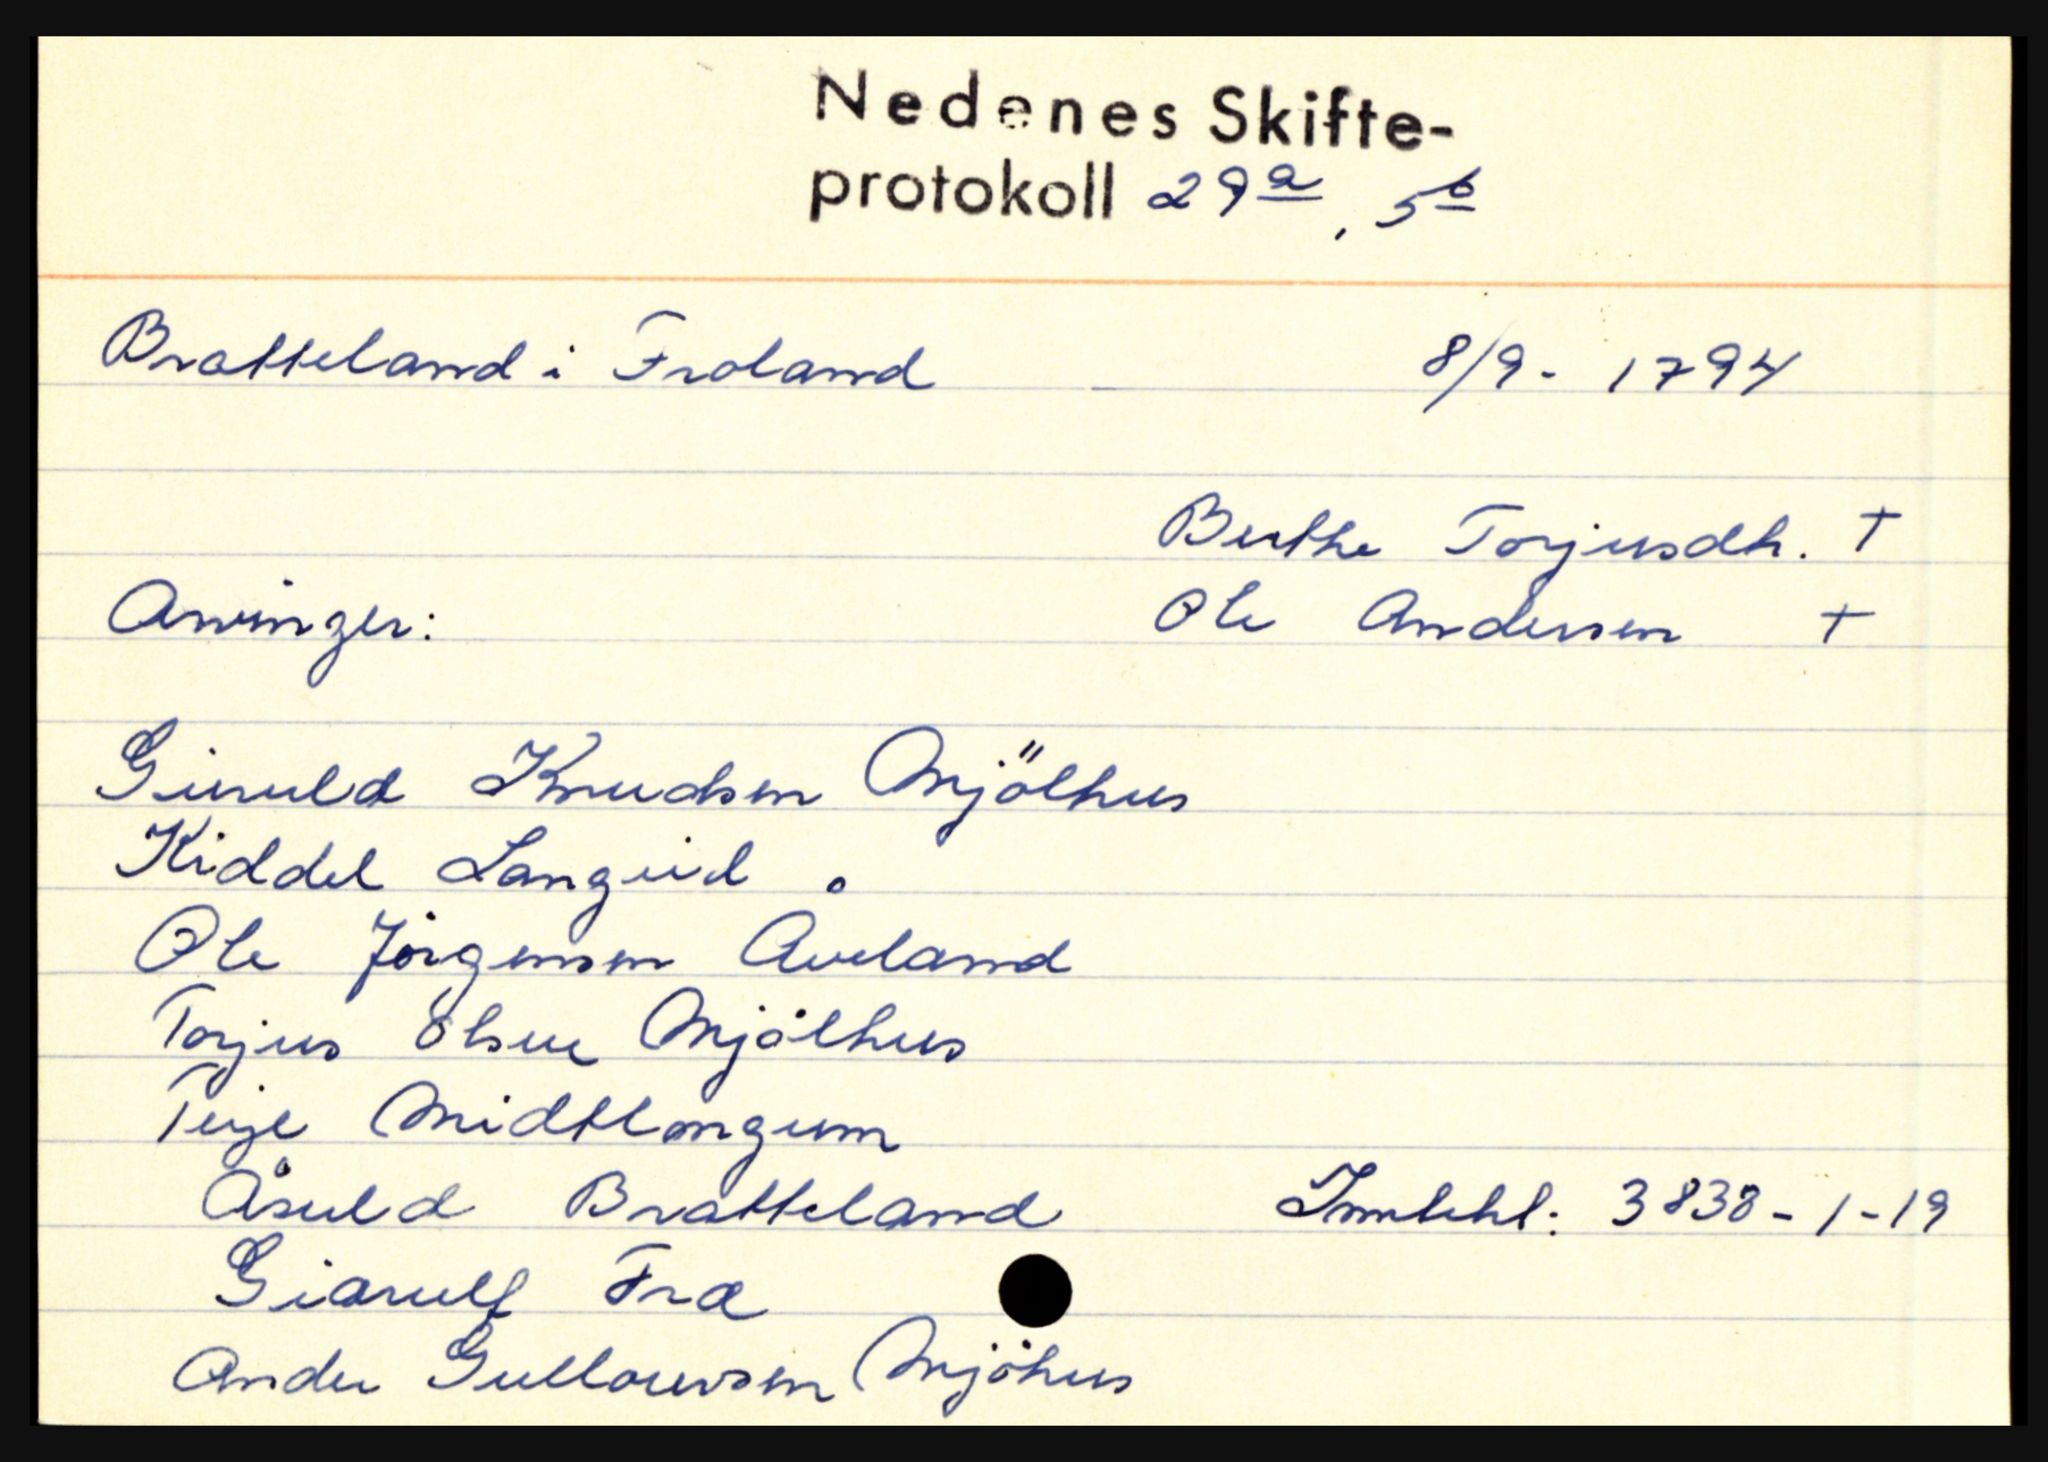 Nedenes Skifte-
protokoll 29a, 5b
Bratteland i Froland - 8/9- 1794
Berthe Torjusdtr. †
Arvinger: Ole Andersen †
Gieruld Knudsen Mjölhus
Kiddel Langeid.
Ole Jörgensen Aveland
Torjus Olsen Mjölhus
Terje Midtlongum
Åsuld Bratteland 3838-1-19
Giarulf Fra
Ander Gullowsen Mjöhus